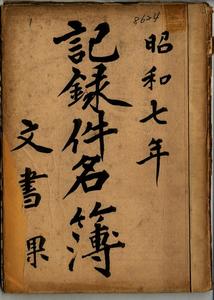 8624
昭和七年
記録件名簿
文書課